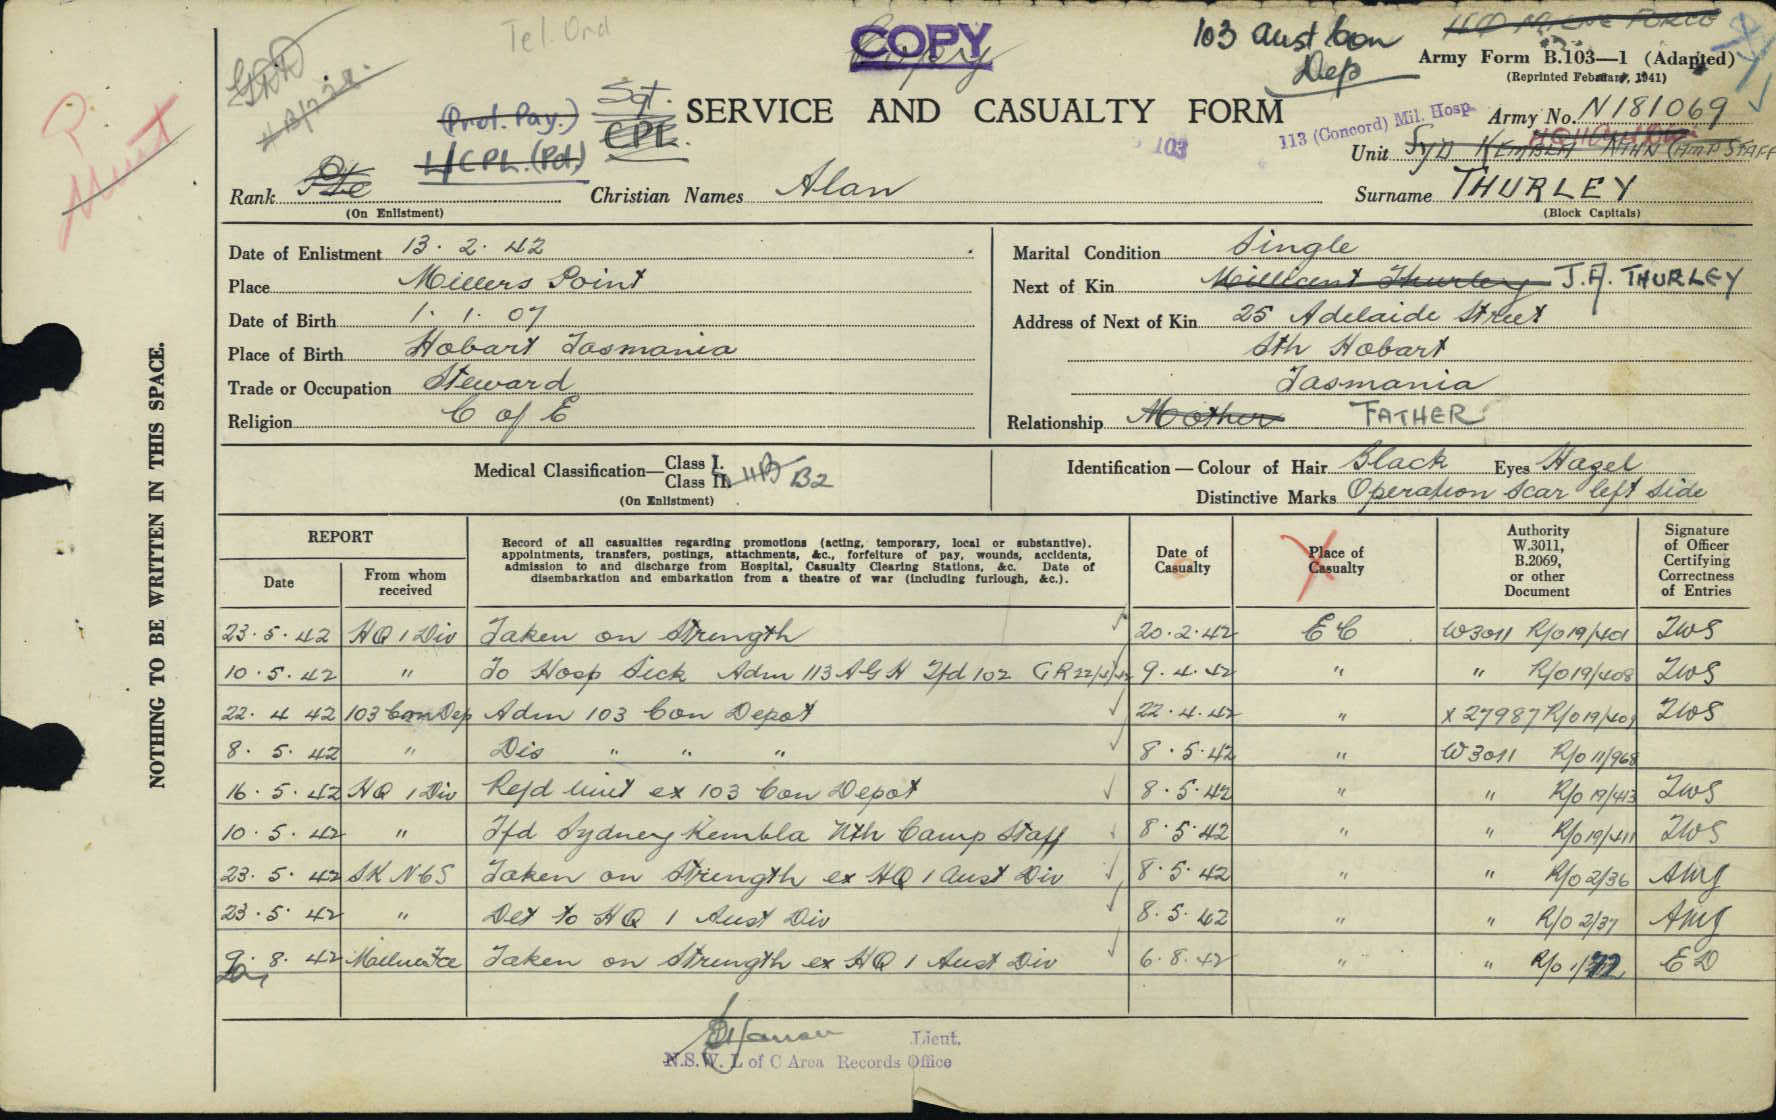 Tel. Ord
COPY
103 Aust Con
Dep
Army Form B.103—1 (Adapted)
(Reprinted February, 1941)
(Prot. Pay.)
Sgt.
SERVICE AND CASUALTY FORM
113 (Concord) Mil. Hosp.
103
Army No. N181069
L/CPL. (Pd.)
CPL.
Unit Syd Kembla Nthn Camp Staff
Rank Pte
(On Enlistment)
Christian Names Alan
Surname THURLEY
(Block Capitals)
NOTHING TO BE WRITTEN IN THIS SPACE.
Date of Enlistment 13. 2. 42
Place Millers Point
Date of Birth 1. 1. 07
Place of Birth Hobart Tasmania
Trade or Occupation Steward
Religion C of E
Marital Condition Single
Next of Kin Millicent Thurley J.A. THURLEY
Address of Next of Kin 25 Adelaide Street
Sth Hobart
Tasmania
Relationship Mother FATHER
Medical Classification— Class I.
Class II. B2
(On Enlistment)
Identification — Colour of Hair Black Eyes Hazel
Distinctive Marks Operation Scar left side
REPORT
Date
From whom received
Record of all casualties regarding promotions (acting, temporary, local or substantive), appointments, transfers, postings, attachments, &c., forfeiture of pay, wounds, accidents, admission to and discharge from Hospital, Casualty Clearing Stations, &c. Date of disembarkation and embarkation from a theatre of war (including furlough, &c.).
Date of Casualty
Place of Casualty
Authority W.3011, B.2069, or other Document
Signature of Officer Certifying Correctness of Entries
23. 5. 42 HQ 1 Div Taken on Strength 20. 2. 42 E C W3011 R/o 19/401 JWS
10. 5. 42 " To Hosp Sick Adm 113 AGH Tfd 102 CR 22/4/42 9. 4. 42 " " R/o 19/408 JWS
22. 4 42 103 Con Dep Adm 103 Con Depot 22. 4. 42 " X 27987 R/o 19/409 JWS
8. 5. 42 " Dis " " " 8. 5. 42 " W3011 R/o 11/968
16. 5. 42 HQ 1 Div Rejd Unit ex 103 Con Depot 8. 5. 42 " " R/o 19/413 JWS
10. 5. 42 " Tfd Sydney Kembla Nth Camp Staff 8. 5. 42 " " R/o 19/411 JWS
23. 5. 42 SK NCS Taken on Strength ex HQ 1 Aust Div 8. 5. 42 " " R/o 2/36 AMG
23. 5. 42 " Det to HQ 1 Aust Div 8. 5. 42 " " R/o 2/37 AMG
9. 8. 42 Milne Fce Taken on Strength ex HQ 1 Aust Div 6. 8. 42 " " R/o 1/22 ED
Lieut.
N.S.W. L of C Area Records Office